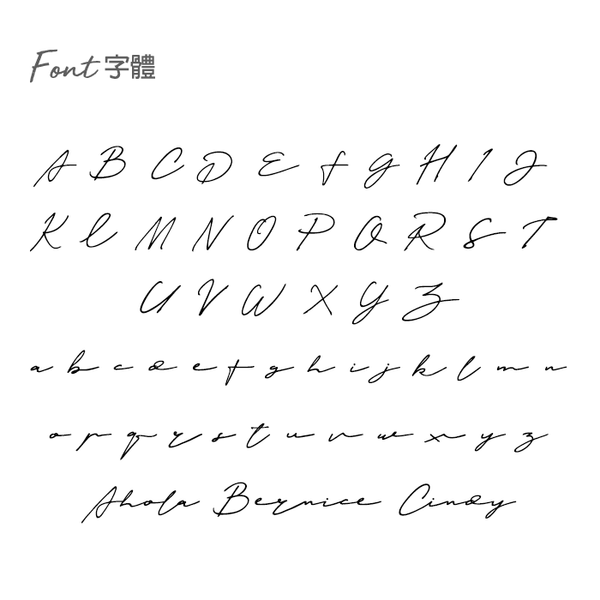 Font 字體
A B C D E F G H I J
K L M N O P Q R S T
U V W X Y Z
a b c d e f g h i j k l m n
o p q r s t u v w x y z
Ahola Bernice Cindy